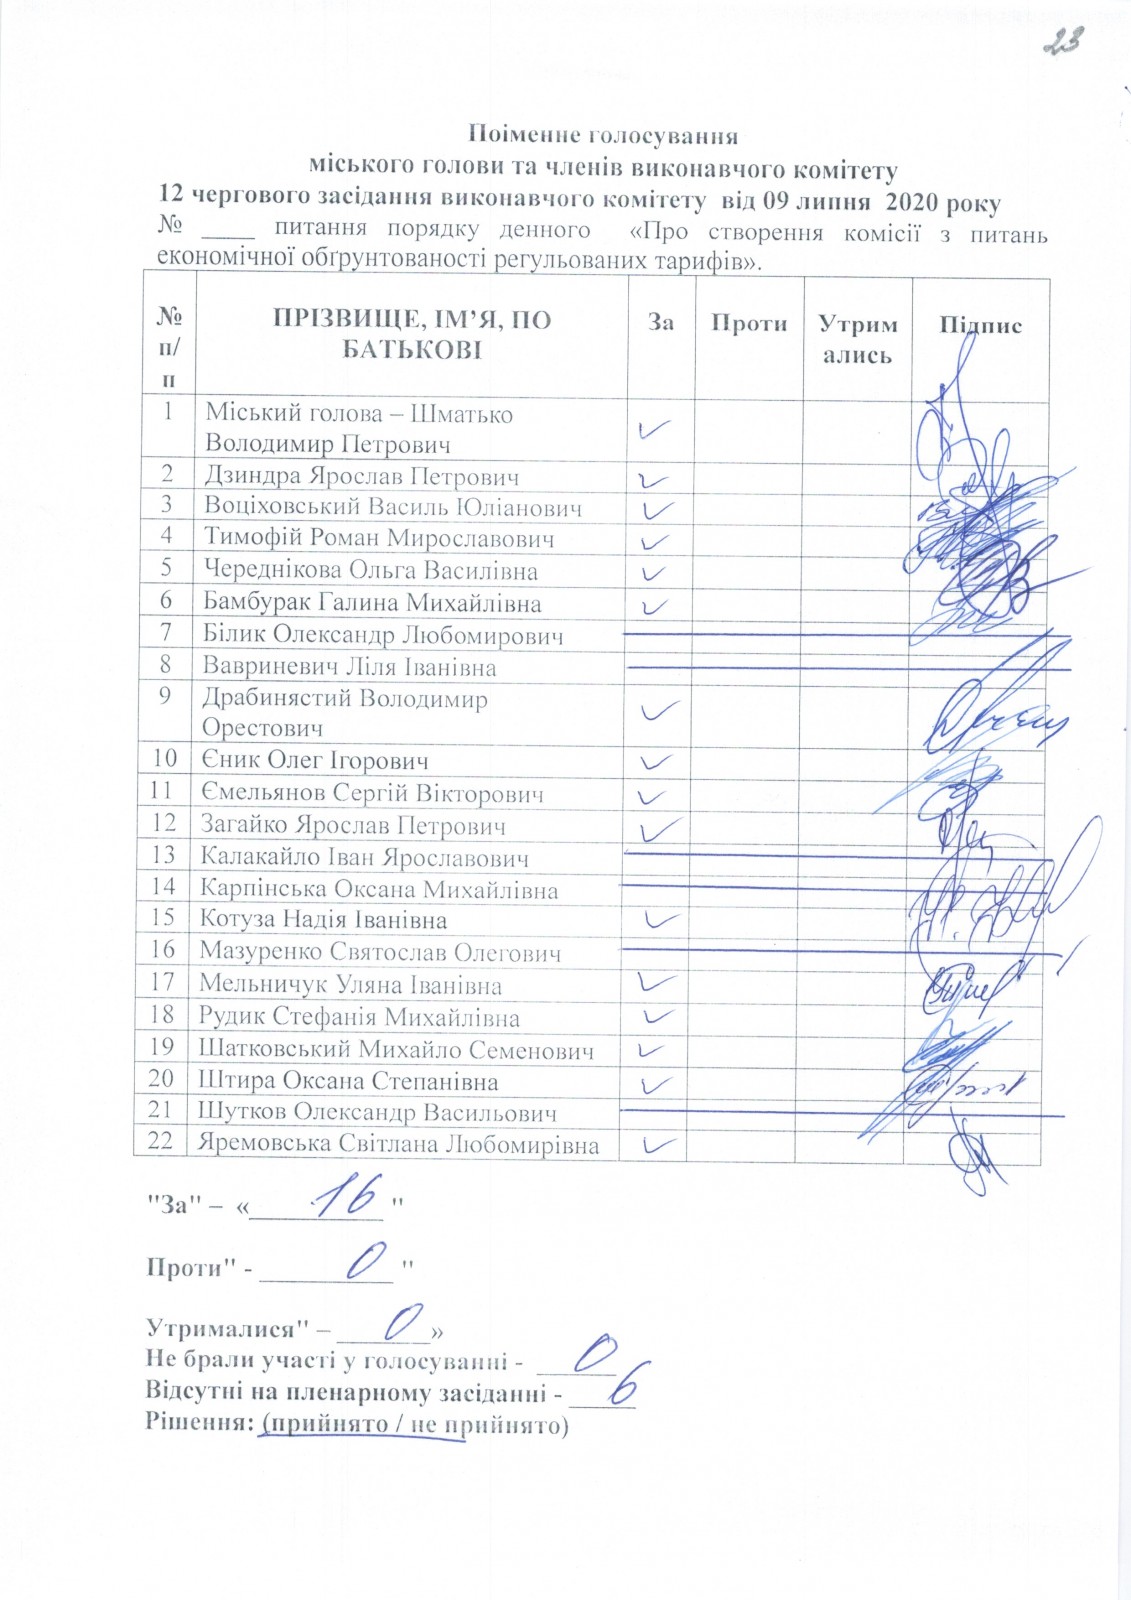 23
Поіменне голосування
міського голови та членів виконавчого комітету
12 чергового засідання виконавчого комітету від 09 липня 2020 року
№ ____ питання порядку денного «Про створення комісії з питань
економічної обґрунтованості регульованих тарифів».
№ п/п ПРІЗВИЩЕ, ІМ’Я, ПО БАТЬКОВІ За Проти Утримались Підпис
1 Міський голова – Шматько
Володимир Петрович
2 Дзиндра Ярослав Петрович
3 Воціховський Василь Юліанович
4 Тимофій Роман Мирославович
5 Череднікова Ольга Василівна
6 Бамбурак Галина Михайлівна
7 Білик Олександр Любомирович
8 Вавриневич Ліля Іванівна
9 Драбинястий Володимир
Орестович
10 Єник Олег Ігорович
11 Ємельянов Сергій Вікторович
12 Загайко Ярослав Петрович
13 Калакайло Іван Ярославович
14 Карпінська Оксана Михайлівна
15 Котуза Надія Іванівна
16 Мазуренко Святослав Олегович
17 Мельничук Уляна Іванівна
18 Рудик Стефанія Михайлівна
19 Шатковський Михайло Семенович
20 Штира Оксана Степанівна
21 Шутков Олександр Васильович
22 Яремовська Світлана Любомирівна
"За" – «16 "
Проти" - 0 "
Утрималися" – 0»
Не брали участі у голосуванні - 0
Відсутні на пленарному засіданні - 6
Рішення: (прийнято / не прийнято)